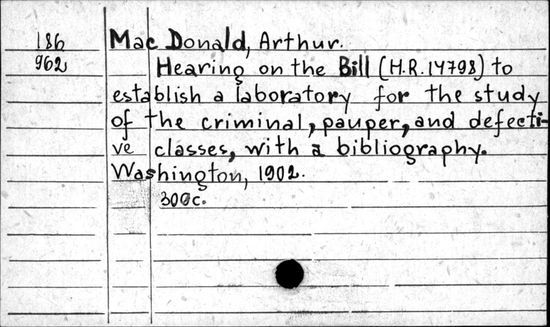 186
962
Mac Donald, Arthur.
Hearing on the Bill (H.R. 14798) to
establish a laboratory for the study
of the criminal, pauper, and defecti-
ve classes, with a bibliography.
Washington, 1902.
309c.